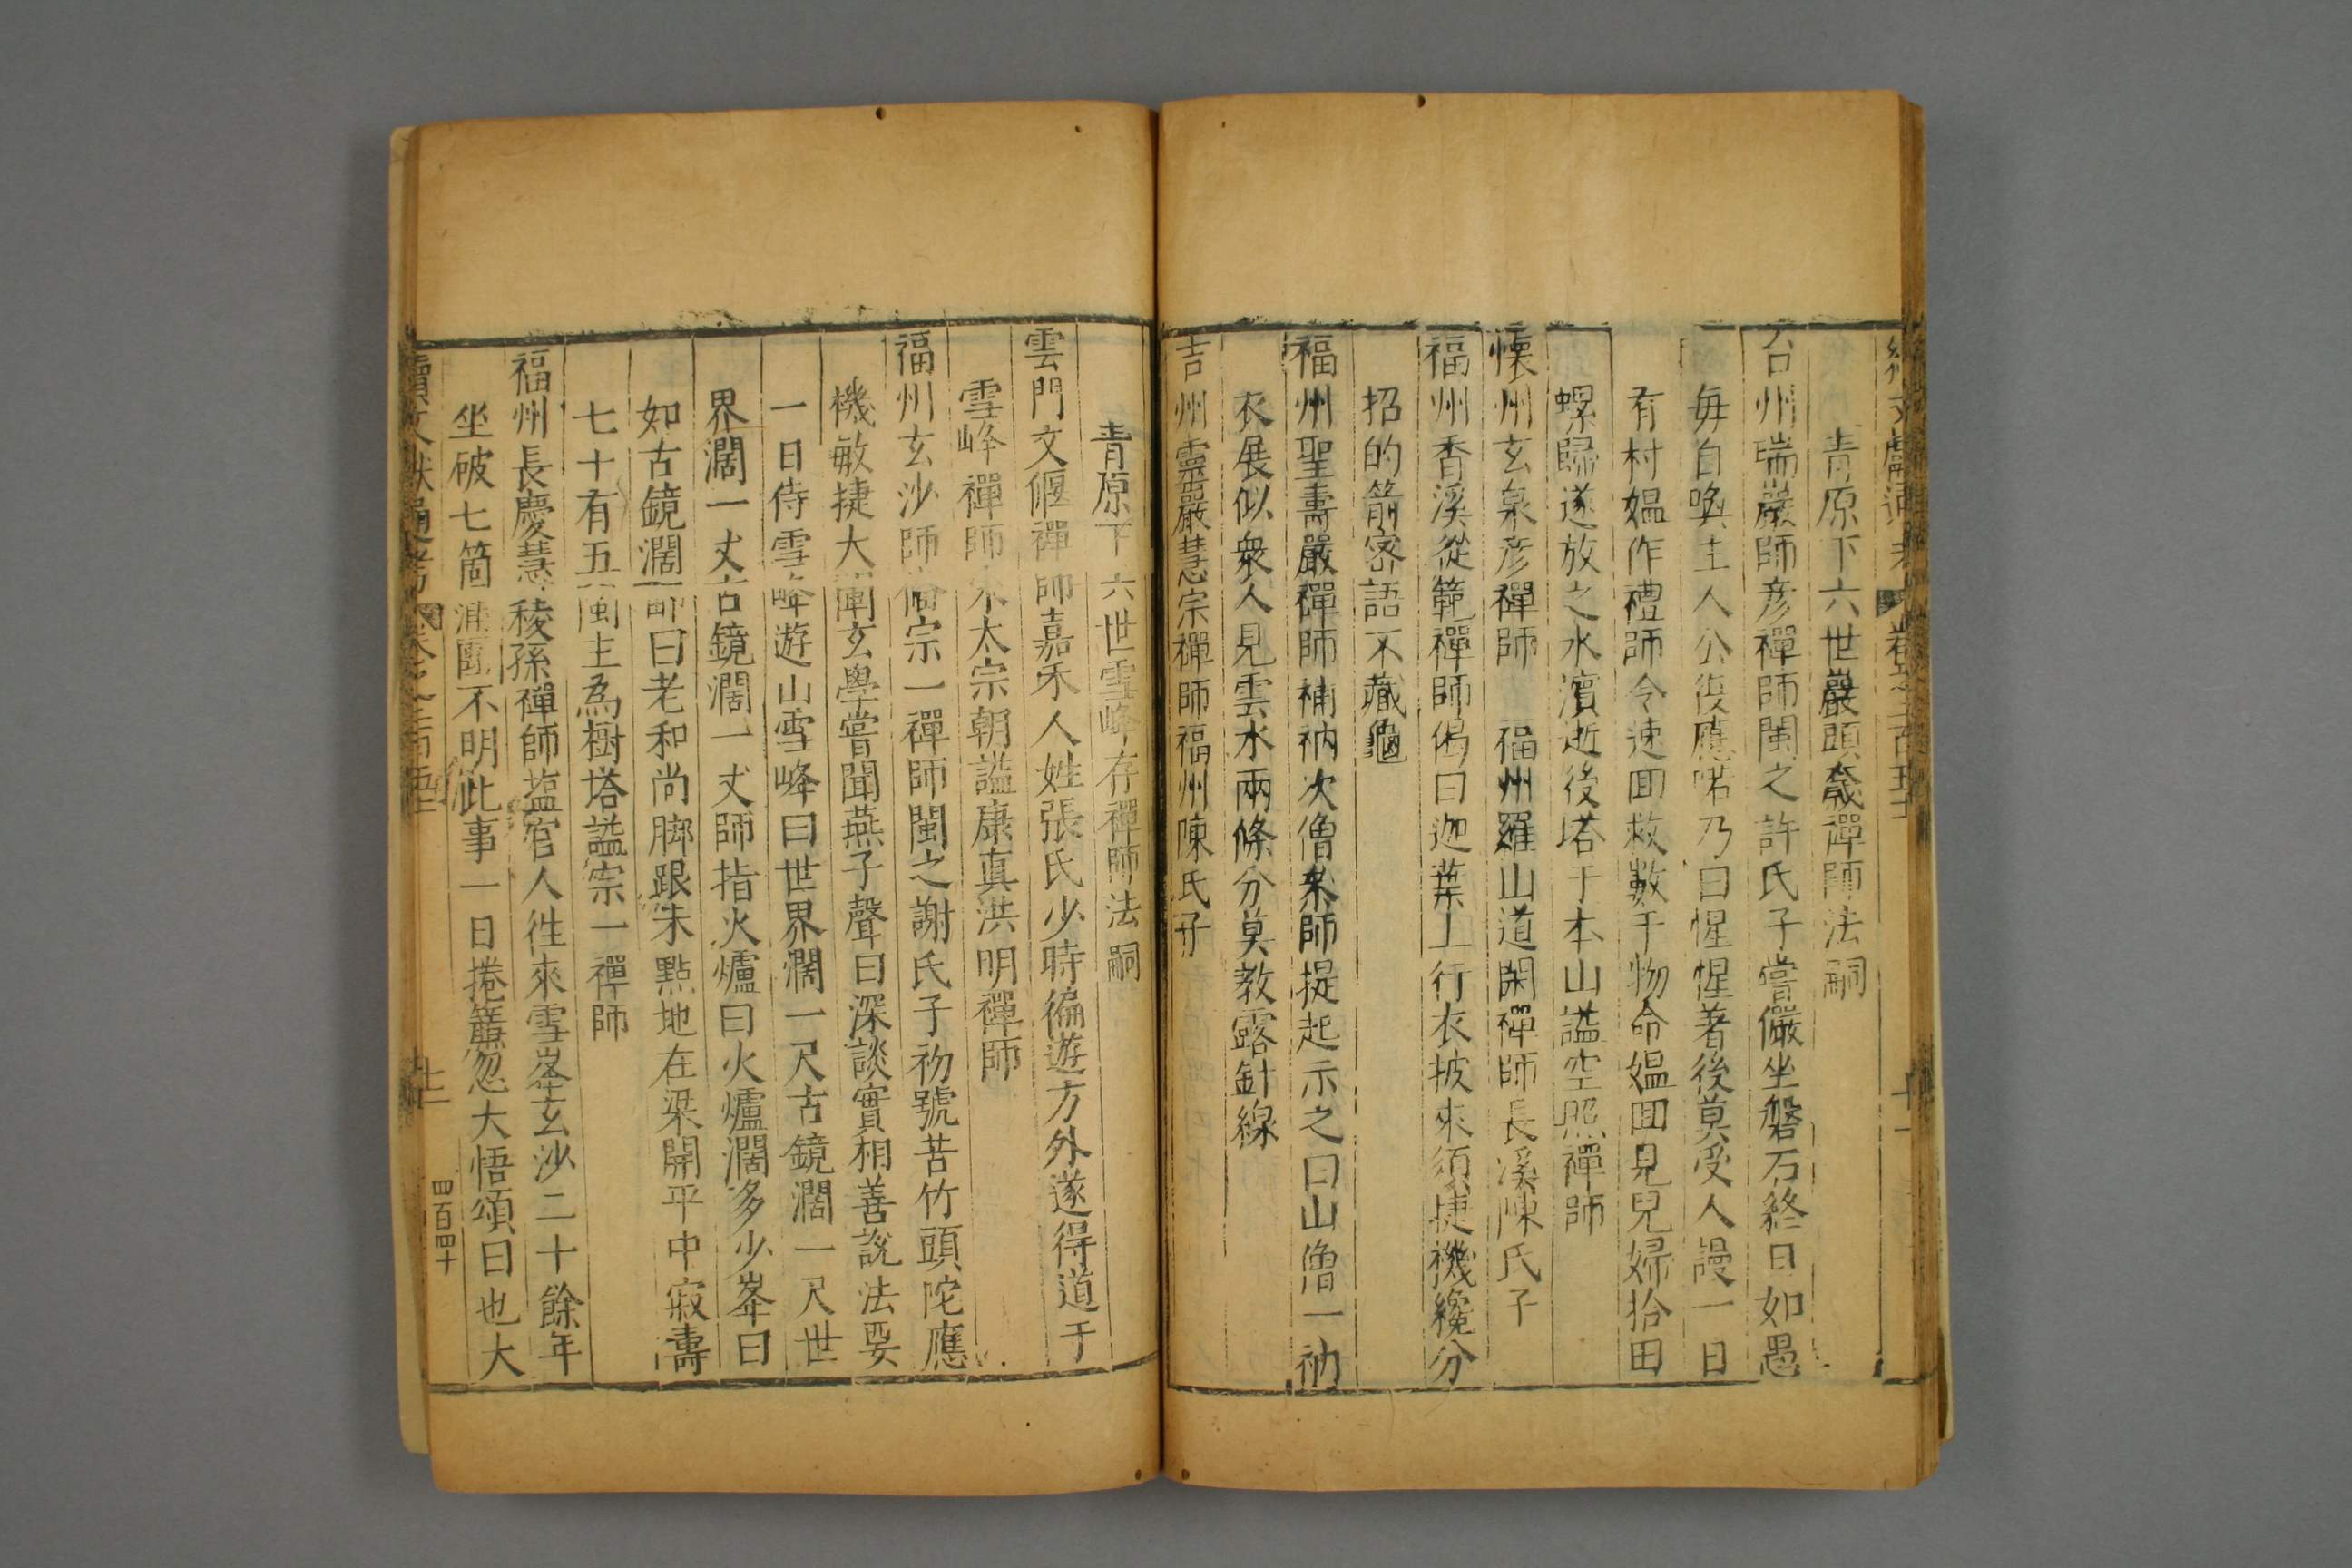 續文獻通考 卷之二百四十
十一
青原下六世巖頭奯禪師法嗣
台州瑞巖師彥禪師閩之許氏子嘗儼坐磐石終日如愚
每自喚主人公復應喏乃曰惺惺著後莫受人謾一日
有村媼作禮師令速回救數千物命媼回見兒婦拾田
螺歸遂放之水濱逝後塔于本山謚空照禪師
懷州玄泉彥禪師 福州羅山道閑禪師長溪陳氏子
福州香溪從範禪師偈曰迦葉上行衣披來須捷機纔分
招的箭密語不藏龜
福州聖壽嚴禪師補衲次僧參師提起示之曰山僧一衲
衣展似衆人見雲水兩條分莫教露針線
吉州靈巖慧宗禪師福州陳氏子
青原下六世雪峰存禪師法嗣
雲門文偃禪師嘉禾人姓張氏少時徧遊方外遂得道于
雪峰禪師宋太宗朝謚康真洪明禪師
福州玄沙師備宗一禪師閩之謝氏子初號苦竹頭陀應
機敏捷大闡玄學嘗聞燕子聲曰深談實相善說法要
一日侍雪峰遊山雪峰曰世界濶一尺古鏡濶一尺世
界濶一丈古鏡濶一丈師指火爐曰火爐濶多少峯曰
如古鏡濶師曰老和尚脚跟未點地在梁開平中寂壽
七十有五閩主為樹塔謚宗一禪師
福州長慶慧稜孫禪師塩官人徃來雪峯玄沙二十餘年
坐破七箇蒲團不明此事一日捲簾忽大悟頌曰也大
續文獻通考 卷之二百四十
十二
四百四十